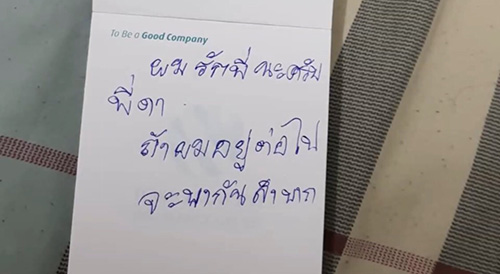 To Be a Good Company
ผมรักพี่นะครับ
พี่ดา
ถ้าผมอยู่ต่อไป
จะพากันลำบาก